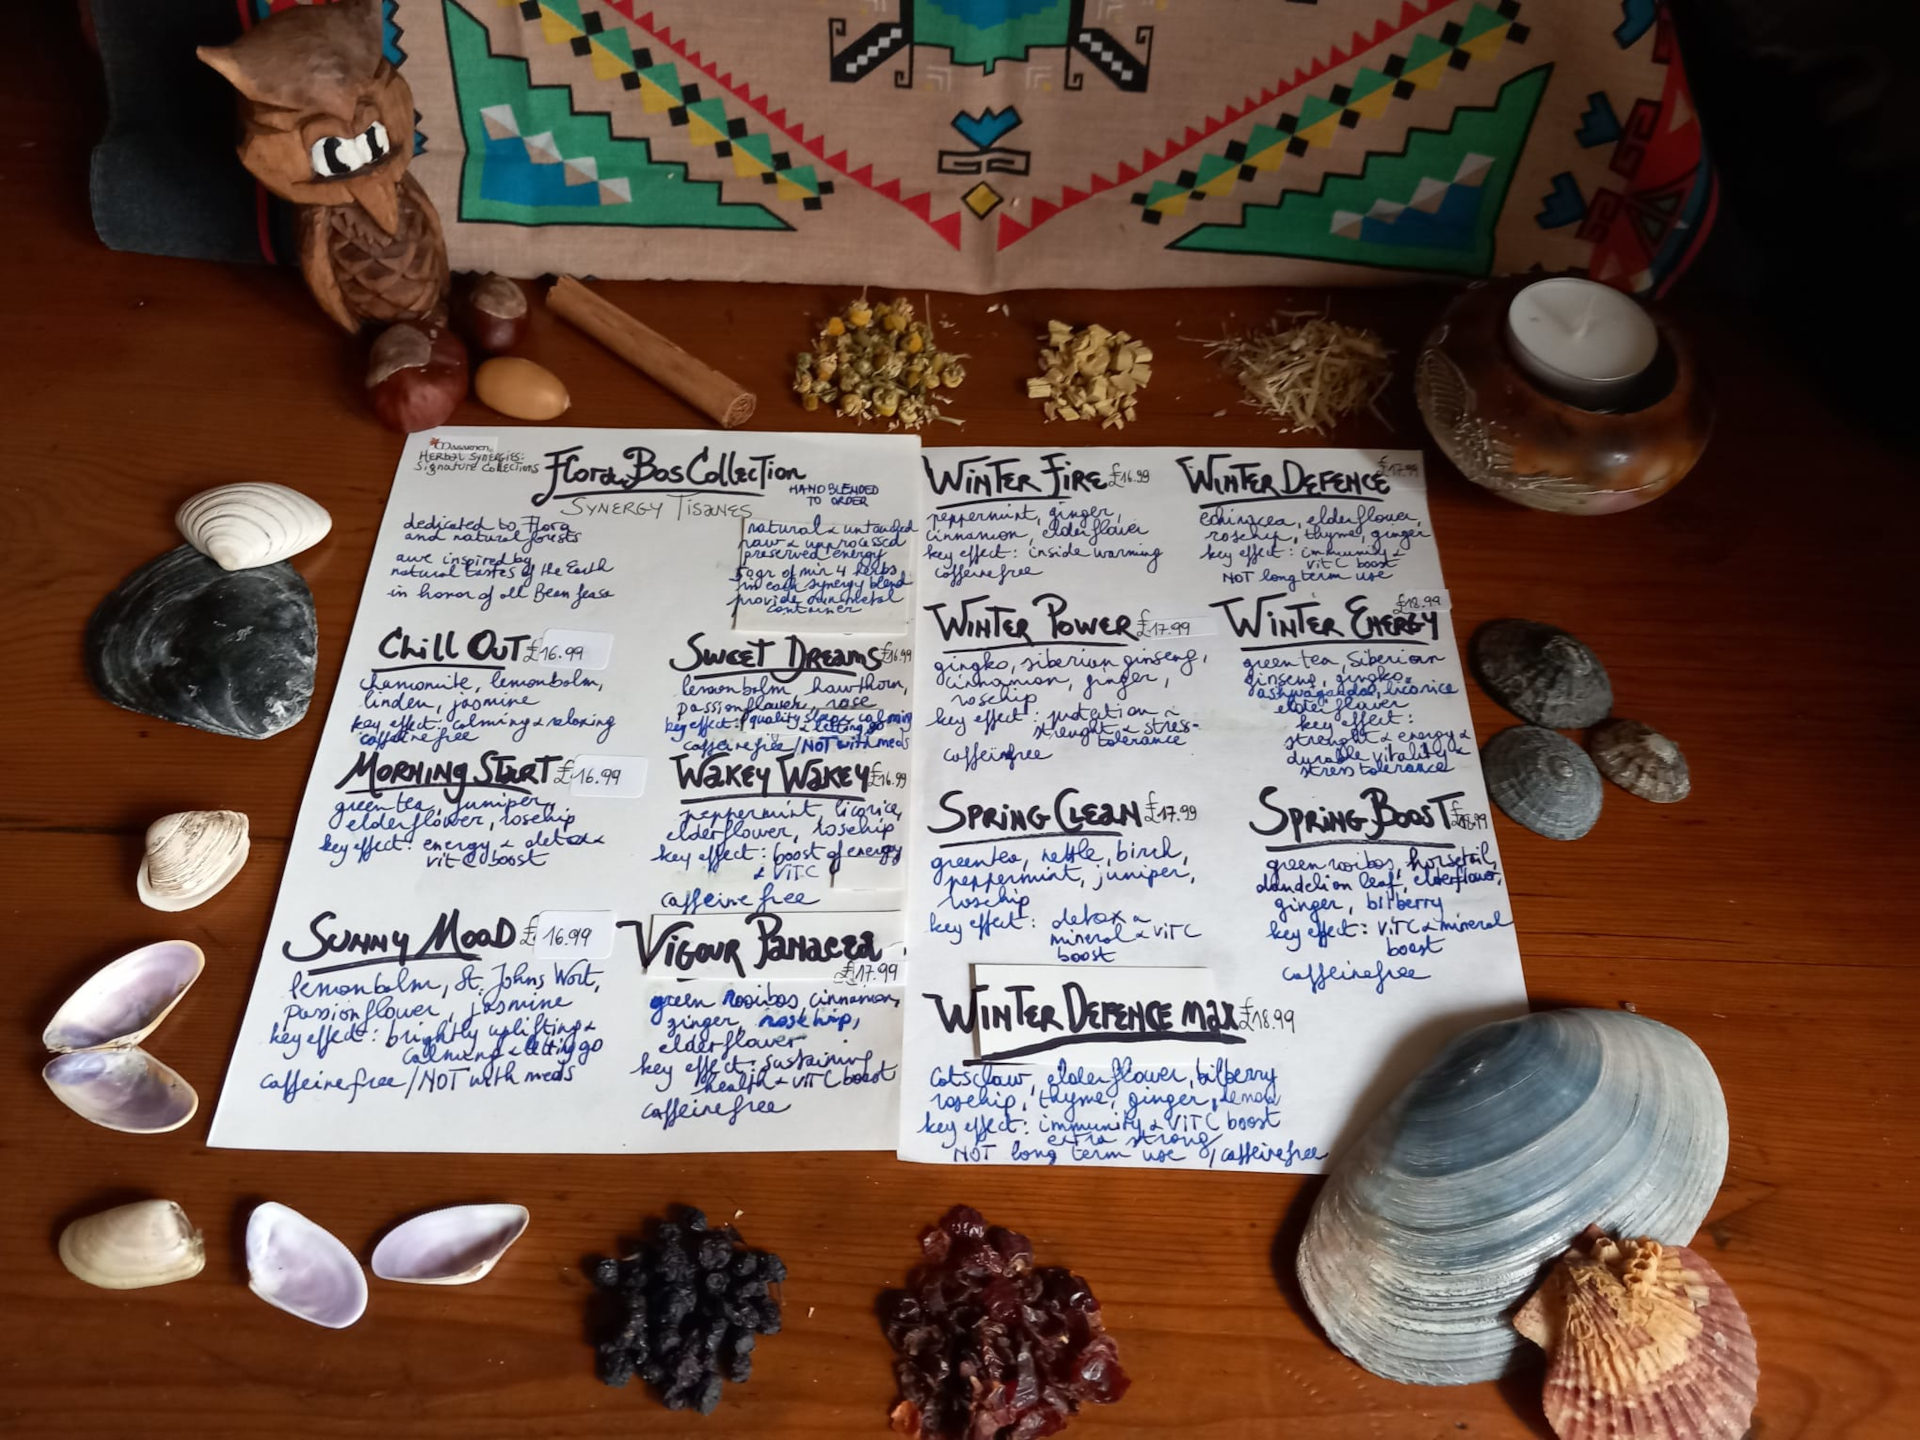 HERBAL SYNERGIES:
SIGNATURE COLLECTIONS
Flora Bos Collection
HAND BLENDED
TO ORDER
SYNERGY TISANES
dedicated to Flora
and natural forests
are inspired by
natural tastes of the Earth
in honor of all Bean feasa
natural & untouched
raw & unprocessed
preserved energy
50gr of min 4 herbs
in each synergy blend
provide own metal
container
CHILL OUT £16.99
chamomile, lemonbalm,
linden, jasmine
key effect: calming & relaxing
caffeine free
SWEET DREAMS £16.99
lemonbalm, hawthorn,
passionflower, rose
key effect: quality sleep calming
& letting go
caffeine free / NOT with meds
MORNING START £16.99
green tea, juniper,
elderflower, rosehip
key effect: energy & detox &
vit C boost
WAKEY WAKEY £16.99
peppermint, licorice,
elderflower, rosehip
key effect: boost of energy
& VIT C
caffeine free
SUNNY MOOD £16.99
lemonbalm, St. Johns Wort,
passionflower, jasmine
key effect: brightly uplifting &
calming & letting go
caffeinefree / NOT with meds
VIGOUR PANACEA
£17.99
green rooibos, cinnamon,
ginger, rosehip,
elderflower
key effect: sustaining
health & VIT C boost
caffeinefree
WINTER FIRE £16.99
peppermint, ginger,
cinnamon, elderflower
key effect: inside warming
caffeinefree
WINTER DEFENCE £17.99
echinacea, elderflower,
rosehip, thyme, ginger
key effect: immunity &
vit C boost
NOT long term use
WINTER POWER £17.99
gingko, siberian ginseng,
cinnamon, ginger,
rosehip
key effect:
strenght & stres-
tolerance
caffeinfree
WINTER ENERGY £18.99
green tea, Siberian
ginseng, gingko,
ashwaganda, licorice
elderflower
key effect:
strenght & energy &
durable vitality &
stress tolerance
SPRING CLEAN £17.99
greentea, nettle, birch,
peppermint, juniper,
rosehip
key effect: detox &
mineral & VIT C
boost
SPRING BOOST
green rooibos, horsetail,
dandelion leaf, elderflower,
ginger, bilberry
key effect: VIT C & mineral
boost
caffeinefree
WINTER DEFENCE MAX £18.99
catsclaw, elderflower, bilberry
rosehip, thyme, ginger, lemon
key effect: immunity & VIT C boost
extra strong
NOT long term use / caffeinefree